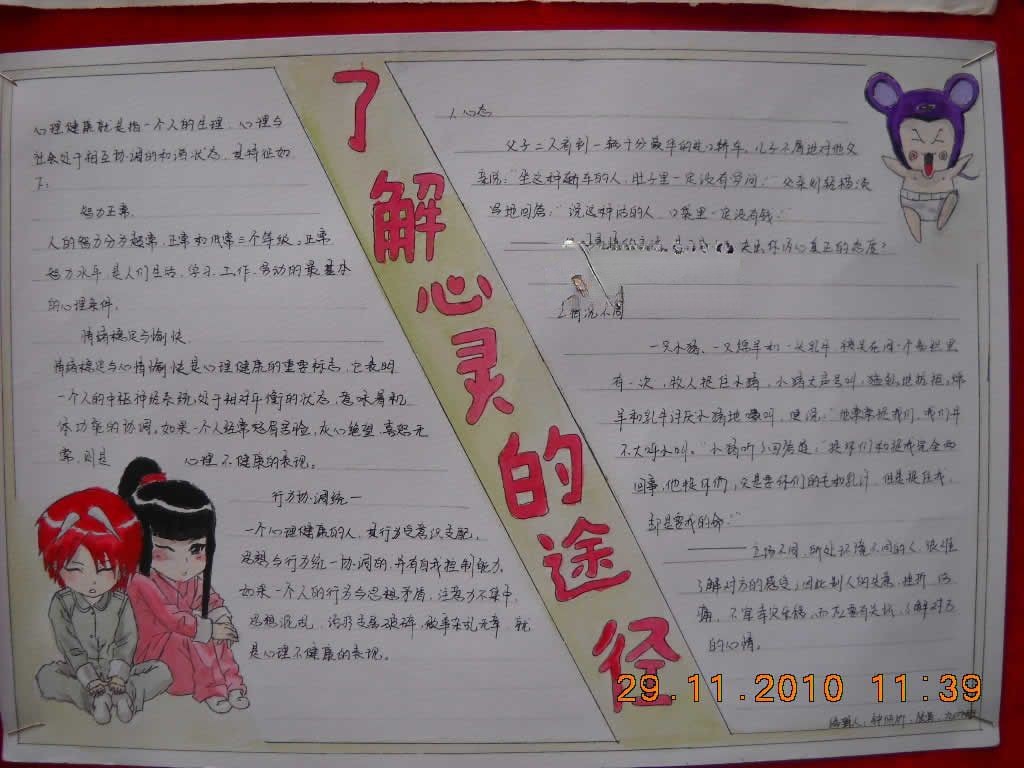 了解心灵的途径
心理健康就是指一个人的生理、心理与
社会处于相互协调的和谐状态，其特征如
下：
智力正常。
人的智力分为超常、正常和低常三个等级，正常
智力水平，是人们生活、学习、工作、劳动的最基本
的心理条件。
情绪稳定与愉快。
情绪稳定与心情愉快是心理健康的重要标志，它表明
一个人的中枢神经系统处于相对平衡的状态，意味着机
体功能的协调。如果一个人经常愁眉苦脸，灰心绝望，喜怒无
常，则是 心理不健康的表现。
行为协调统一
一个心理健康的人，其行为受意识支配，
思想与行为统一协调的，并有自我控制能力。
如果一个人的行为与思想矛盾，注意力不集中，
思想混乱，语言支离破碎，做事杂乱无章，就
是心理不健康的表现。
1 心态
父子二人看到一辆十分豪华的进口轿车。儿子不屑地对他父
亲说：“坐这种轿车的人，肚子里一定没有学问！”父亲则轻描淡
写地回答：“说这种话的人，口袋里一定没有钱！”
出你内心真正的态度？
2 情况不同
一只小猪、一只绵羊和一头乳牛，被关在同一个畜栏里
有一次，牧人捉住小猪，小猪大声号叫，猛烈地抗拒，绵
羊和乳牛讨厌小猪地嚎叫，便说：“他常常捉我们，我们并
不大呼小叫。”小猪听了回答道：“捉你们和捉我完全两
回事，他捉你们，只是要你们的毛和乳汁，但是捉住我，
却是要我的命！”
立场不同、所处环境不同的人，很难
了解对方的感受；因此别人的失意、挫折、伤
痛，不宜幸灾乐祸，而应要有关怀、了解对方
的心情。
29.11.2010 11:39